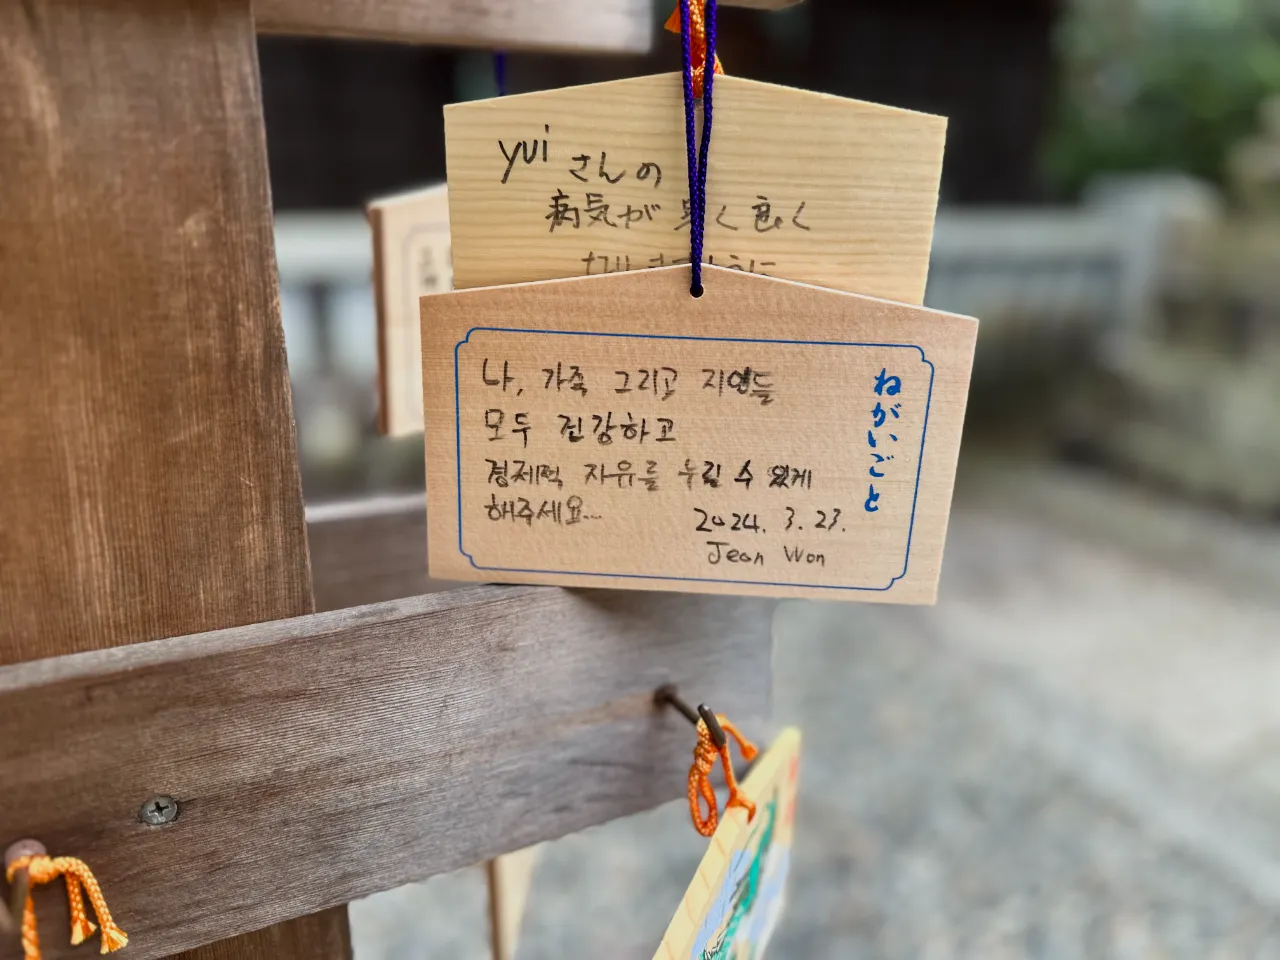 yui さんの
病気が 早く良く
なりますように
나, 가족 그리고 지인들
모두 건강하고
경제적 자유를 누릴 수 있게
해주세요...
2024. 3. 23.
Jean Won
ねがいごと